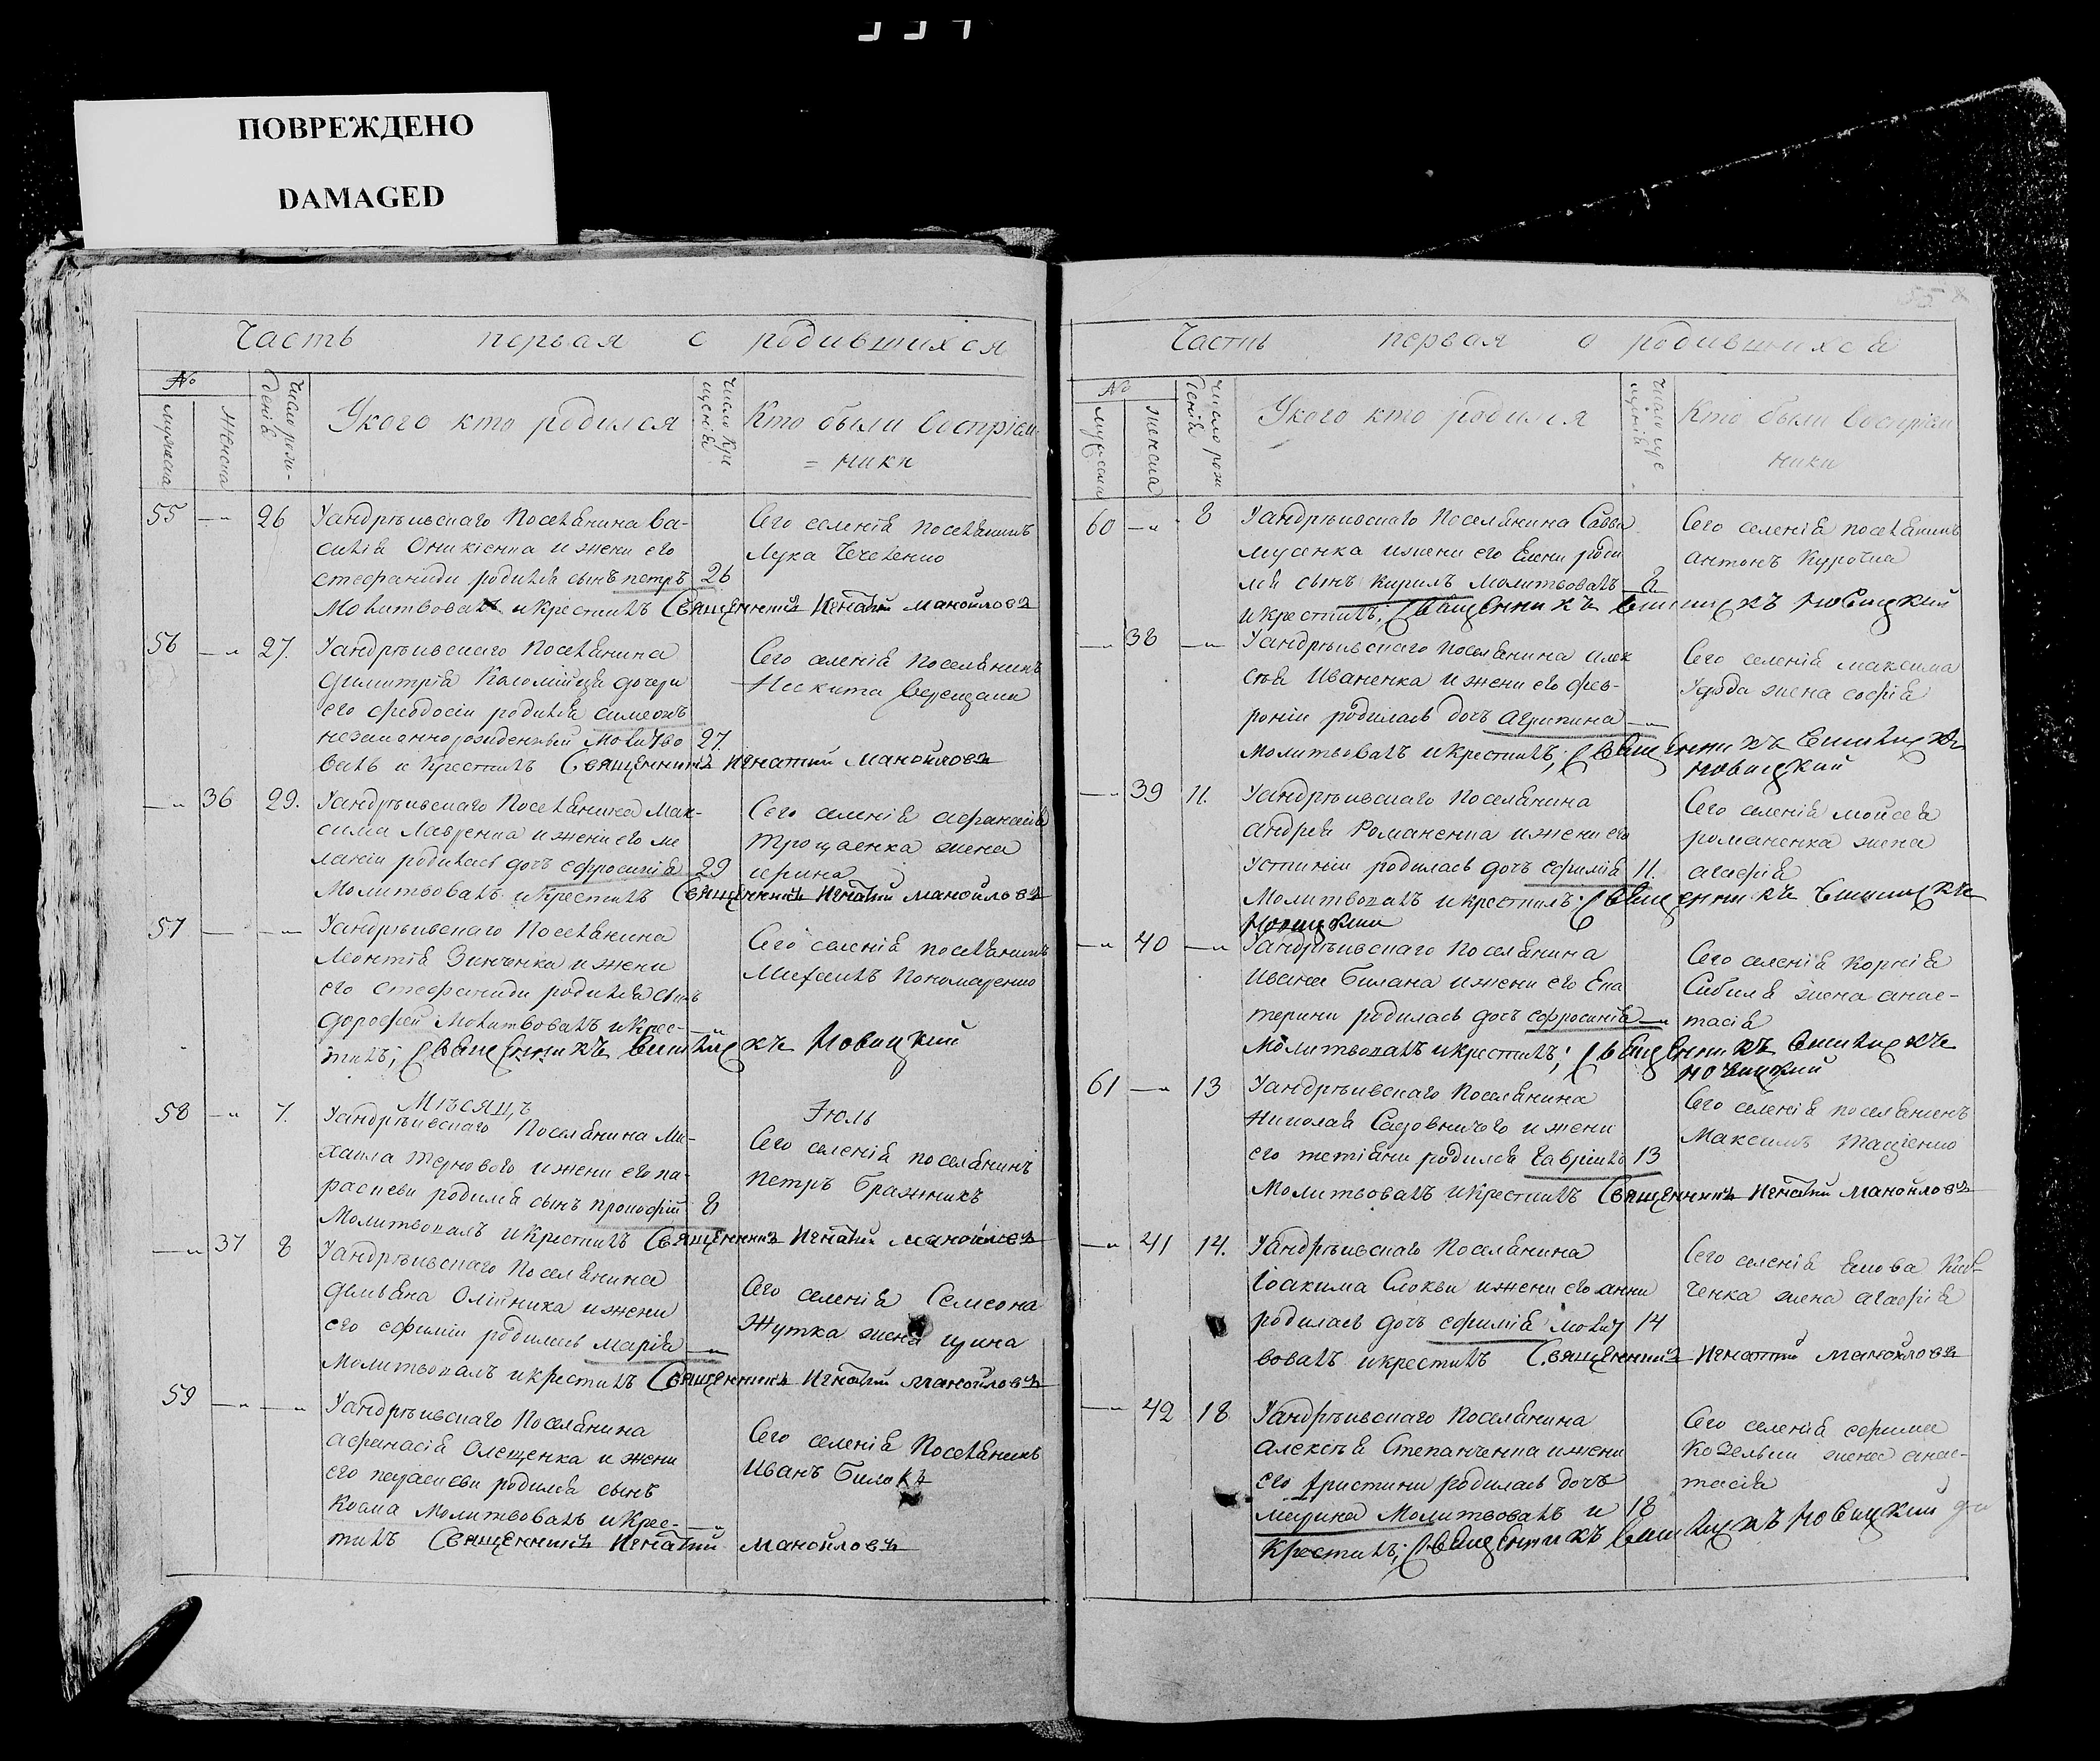 ПОВРЕЖДЕНО
DAMAGED
Часть первая о родившихся
№
мужеска
женска
Число рож-
денія
У кого кто родился
Число кре
щенія
Кто были воспріем
= ники
55 —„ 26 У андрѣивскаго Поселянина Ва-
силія Оникіенка и жени его
стефаниди родился сынъ петръ 26
Молитвовалъ и крестилъ Священникъ Игнатій Манойловъ
Сего селенія поселянинъ
Лука Чечеленко
56 —„ 27. У андрѣивскаго Поселянина
Димитрія Каломійця дочери
его феодосіи родился симеонъ
незаконнорожденный Молитво 27.
валъ и крестилъ Священникъ Игнатій Манойловъ
Сего селенія Поселянинъ
Никита Верещака
—„ 36 29. У андрѣивскаго Поселянина Мак-
сима Лавренка и жени его ме
ланіи родилась дочь ефросинія 29
Молитвовалъ и крестилъ Священникъ Игнатій Манойловъ
Сего селенія афанасія
Трощаенка жена
ирина
57 — —„ У андрѣивскаго Поселянина
Леонтія Зинченка и жени
его Стефаниди родился сынъ
дорофей Молитвовалъ и крес- —„
тилъ; Священникъ Новицкій
Сего селенія поселянинъ
Михаилъ Пономаренко
Мѣсяцъ Іюль
58 —„ 7. У андрѣивскаго Поселянина Ми-
хаила Тернового и жени его па-
раскеви родился сынъ прокофій 8
Молитвовалъ и крестилъ Священникъ Игнатій Манойловъ
Сего селенія поселянинъ
Петръ Бражникъ
—„ 37 8 У андрѣивскаго Поселянина
Демьяна Олійника и жени
его ефиміи родилась марія —„
Молитвовалъ и крестилъ Священникъ Игнатій Манойловъ
Сего селенія Семеона
Жутка жена ирина
59 —„ —„ У андрѣивскаго Поселянина
афанасія Олещенка и жени
его параскеви родился сынъ
Косма Молитвовалъ и крес- —„
тилъ Священникъ Игнатій Манойловъ
Сего селенія Поселянинъ
Иванъ Билокъ
Часть первая о родившихся
№
мужеска
женска
Число рож
денія
У кого кто родился
Кто были воспріем
ники
60 —„ 8 У андрѣивскаго Поселянина Савви
мусенка и жени его Елени роди
лся сынъ Кирилъ Молитвовалъ 8
и крестилъ; Священникъ Новицкій
Сего селенія поселянинъ
антонъ Курочка
—„ 38 —„ У андрѣивскаго Поселянина алек
сѣя Иваненка и жени его фев-
роніи родилась дочь агрипина —„
Молитвовалъ и крестилъ; Священникъ
Новицкій
Сего селенія максима
жена софія
—„ 39 11. У андрѣивскаго Поселянина
андрея Романенка и жени его
Устиніи родилась дочь ефимія 11.
Молитвовалъ и крестилъ Священникъ
Новицкій
Сего селенія мойсея
романенка жена
агафія
—„ 40 —„ У андрѣивскаго Поселянина
Ивана Билана и жени его Ека
терини родилась дочь ефросинія —„
Молитвовалъ и крестилъ; Священникъ
Новицкій
Сего селенія Корнія
Сибиля жена анас-
тасія
61 —„ 13 У андрѣивскаго Поселянина
Николая Садовничого и жени
его тетіяни родился гавріилъ 13
Молитвовалъ и крестилъ Священникъ Игнатій Манойловъ
Сего селенія поселянинъ
Максимъ Тащенко
—„ 41 14. У андрѣивскаго Поселянина
Іоакима Слокви и жени его анни
родилась дочь ефимія Молит 14
вовалъ и крестилъ Священникъ Игнатій Манойловъ
Сего селенія Якова
ченка жена агафія
—„ 42 18 У андрѣивскаго Поселянина
алексѣя Степанченка и жени
его христини родилась дочь
Марина Молитвовалъ и 18
Крестилъ; Священникъ Новицкій
Сего селенія ефима
Козельки жена анас-
тасія